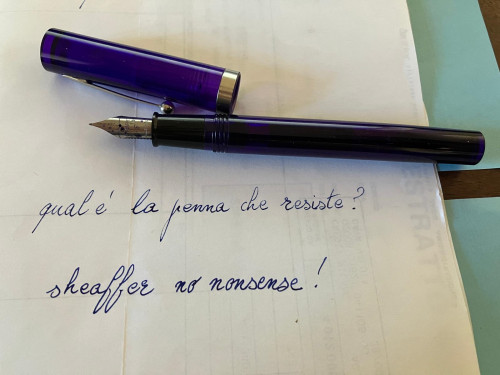 qual é la penna che resiste?
sheaffer no nonsense!